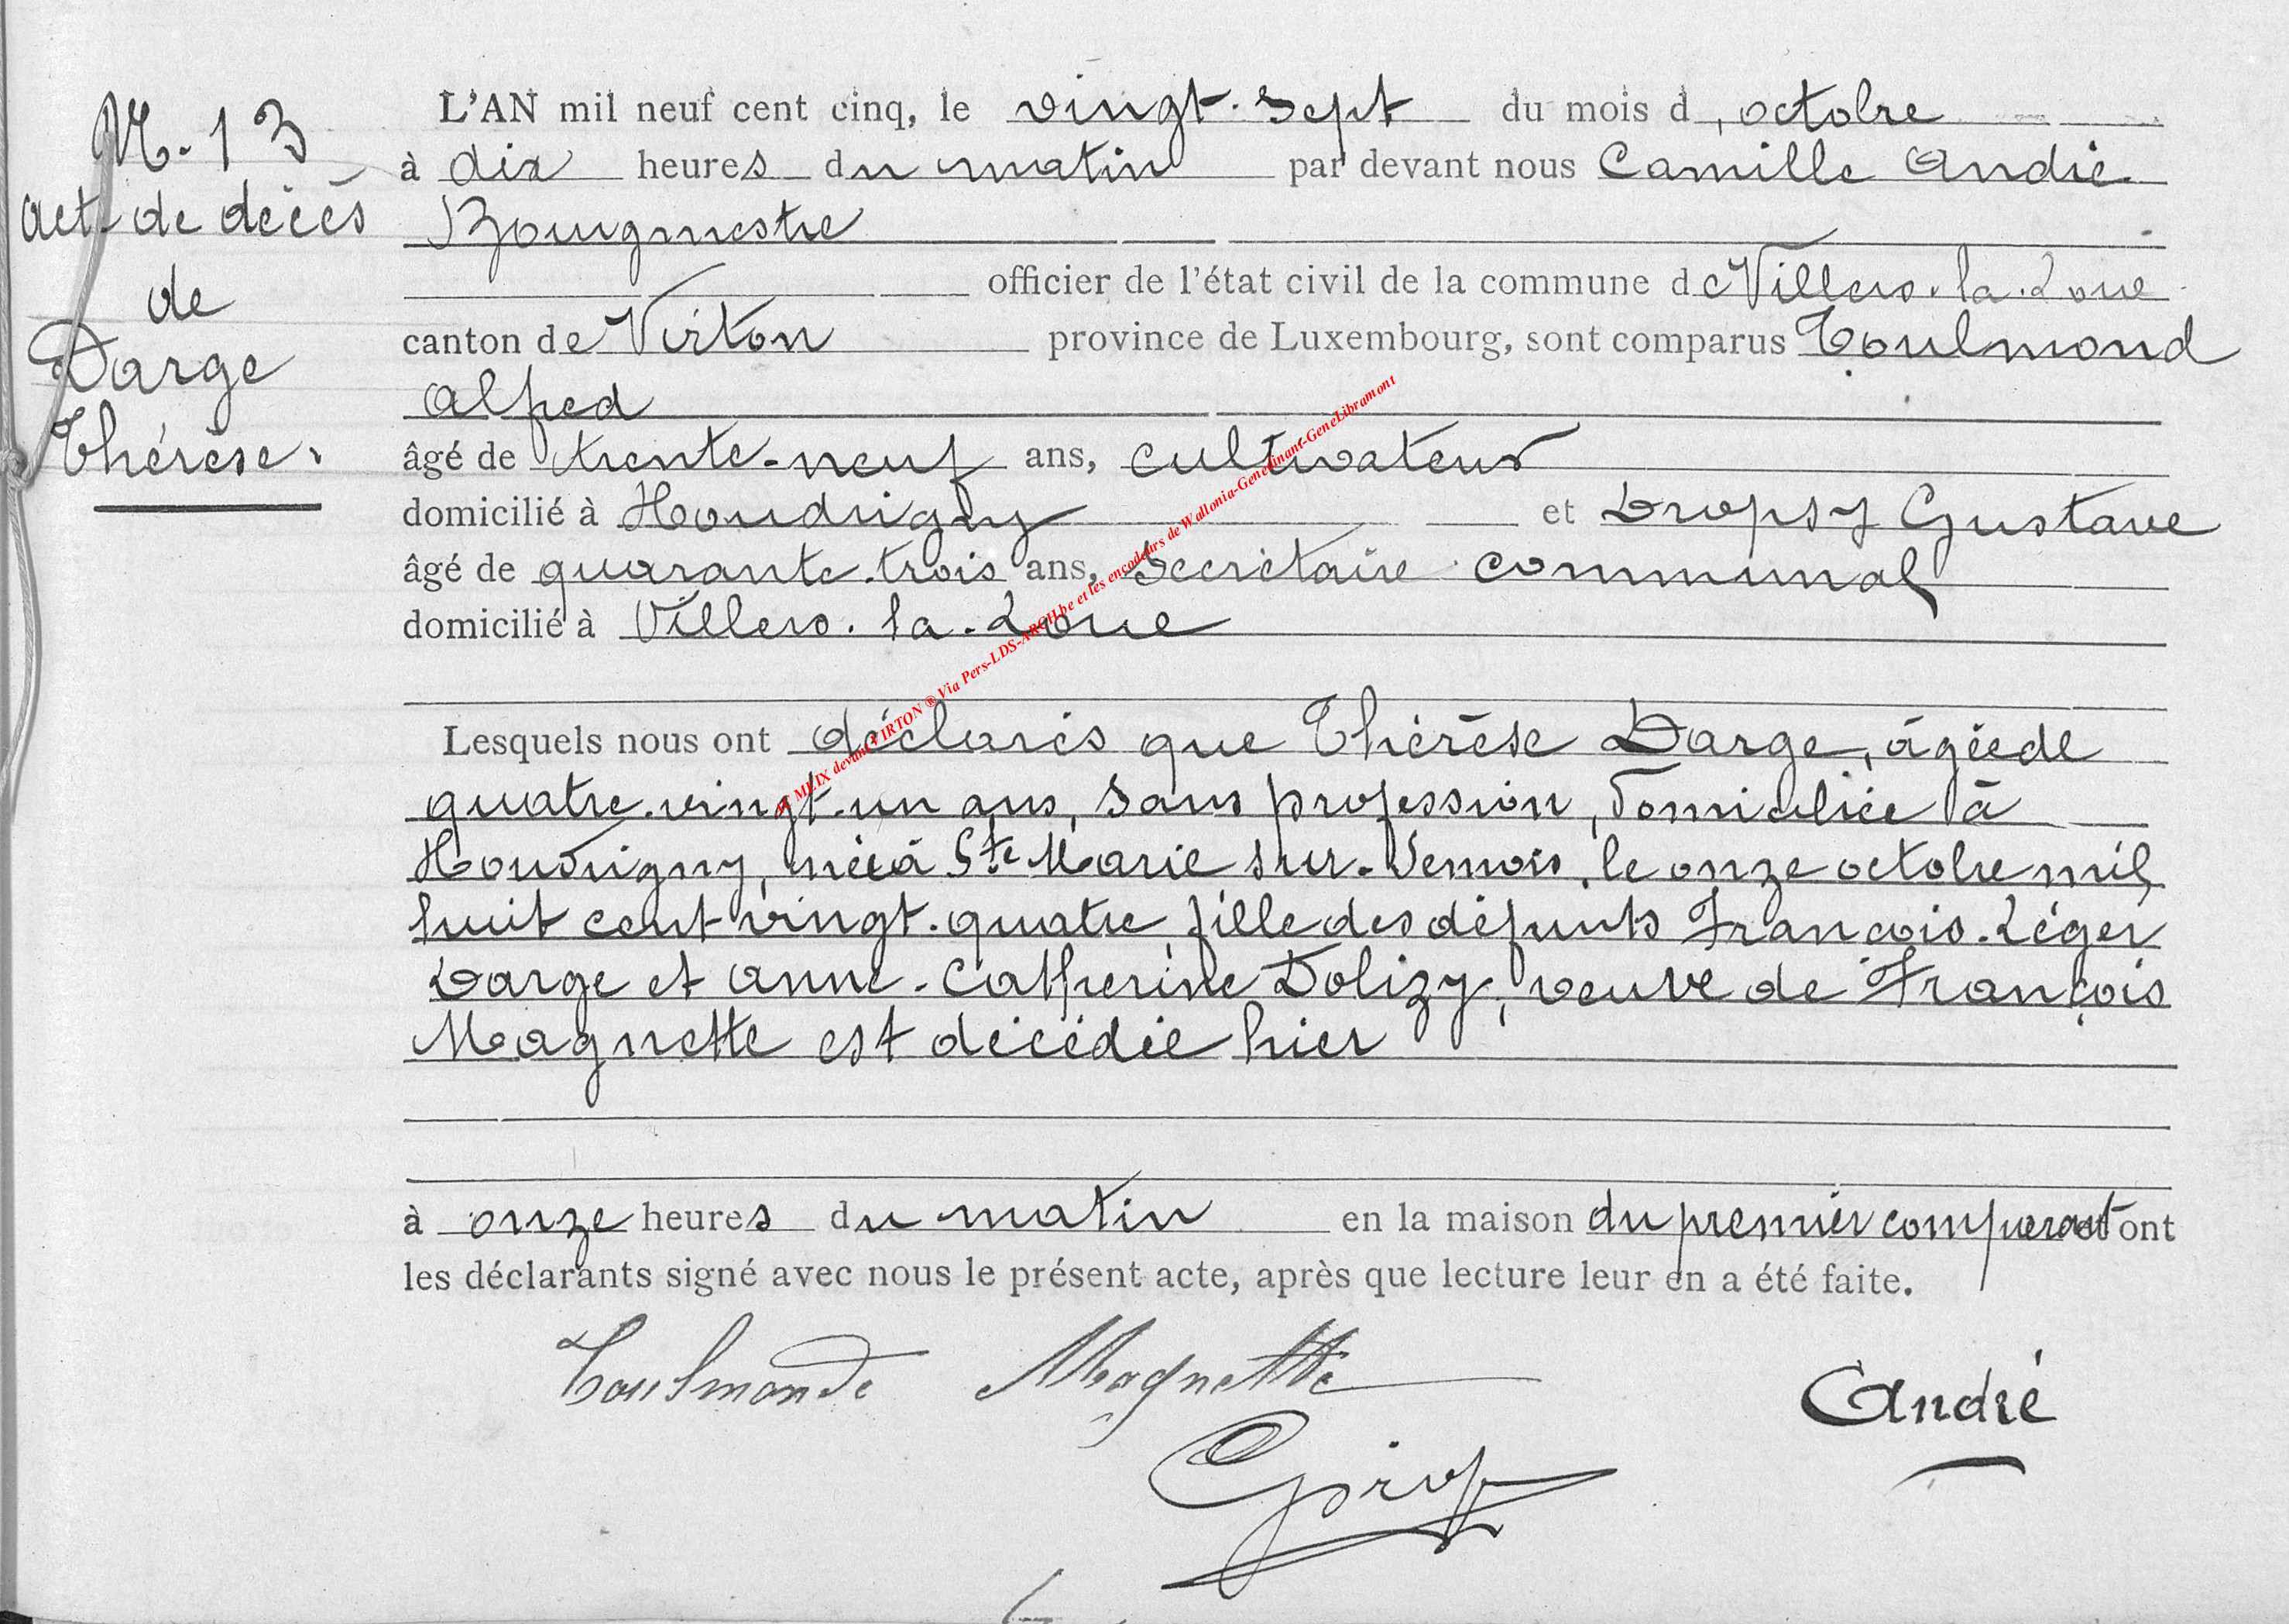 N. 13
Act. de décès
de
Darge
Thérèse.
L'AN mil neuf cent cinq, le vingt-sept du mois d'octobre
à dix heures du matin par devant nous Camille André
Bourgmestre
officier de l'état civil de la commune de Villers-la-Loue
canton de Virton province de Luxembourg, sont comparus Toulmond
Alfred
âgé de trente-neuf ans, cultivateur
domicilié à Houdrigny et Dropsy Gustave
âgé de quarante-trois ans, secrétaire communal
domicilié à Villers-la-Loue
Lesquels nous ont déclarés que Thérèse Darge, âgée de
quatre-vingt-un ans, sans profession, domiciliée à
Houdrigny, née à Ste Marie sur-Semois, le onze octobre mil
huit cent vingt-quatre, fille des défunts François-Léger
Darge et Anne-Catherine Dolizy, veuve de François
Magnette est décédée hier
à onze heures du matin en la maison du premier comparant et ont
les déclarants signé avec nous le présent acte, après que lecture leur en a été faite.
Toulmonde Magnette
André
MLIX devant VIRTON ® Via Pers-LDS-ARCH.be et les encodeurs de Wallonia-GeneDinant-GeneLibramont